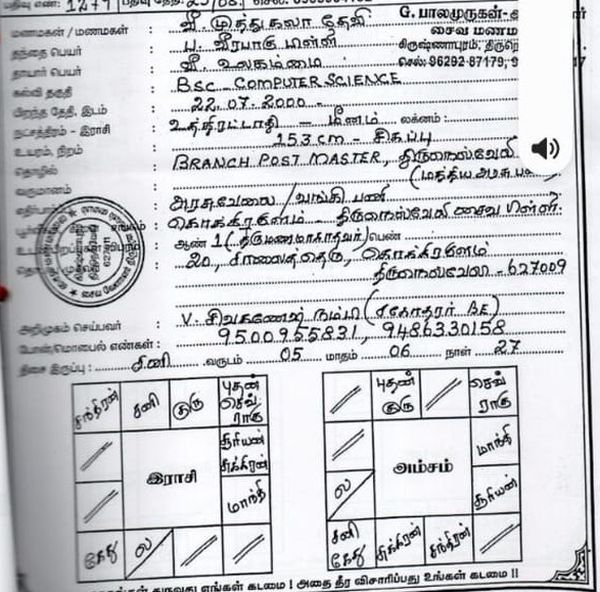 பதிவு எண்: 1279 பதிவு தேதி: 25/08.
G. பாலமுருகன்-த
மணமகன் / மணமகள் : வீ. முத்துகலா தேவி
சைவ மணம
தந்தை பெயர் : ப. வீரபாகு பிள்ளை
கிருஷ்ணாபுரம், திருநெ
தாயார் பெயர் : வீ. உலகம்மை
செல்: 96292-87179, 9
கல்வி தகுதி : B.SC - COMPUTER SCIENCE
பிறந்த தேதி, இடம் : 22.07.2000 -
நட்சத்திரம் - இராசி : உத்திரட்டாதி - மீனம் லக்னம் :
உயரம், நிறம் : 153 cm - சிகப்பு
தொழில் : BRANCH POST MASTER, திருநெல்வேலி
வருமானம் : (மத்திய அரசு
அரசுவேலை / வங்கி பணி
கொக்கிரகுளம் - திருநெல்வேலி சைவ பிள்ளை.
ஆண் 1 (திருமணமாகாதவர்) பெண்
20, சாலைத்தெரு, கொக்கிரகுளம்
திருநெல்வேலி - 627009
அறிமுகம் செய்பவர் : V. சிவகணேஷ் நம்பி (சகோதரர் BE)
போன்/மொபைல் எண்கள் : 9500955831, 9486330158
திசை இருப்பு : சனி வருடம் 05 மாதம் 06 நாள் 27
சந்திரன் சனி குரு புதன் செவ் ராகு
சூரியன் சுக்கிரன்
இராசி
மாந்தி
கேது ல
புதன் குரு செவ் ராகு
மாந்தி
அம்சம்
ல சூரியன்
சனி கேது சுக்கிரன் சந்திரன்
தருவது எங்கள் கடமை ! அதை தீர விசாரிப்பது உங்கள் கடமை !!